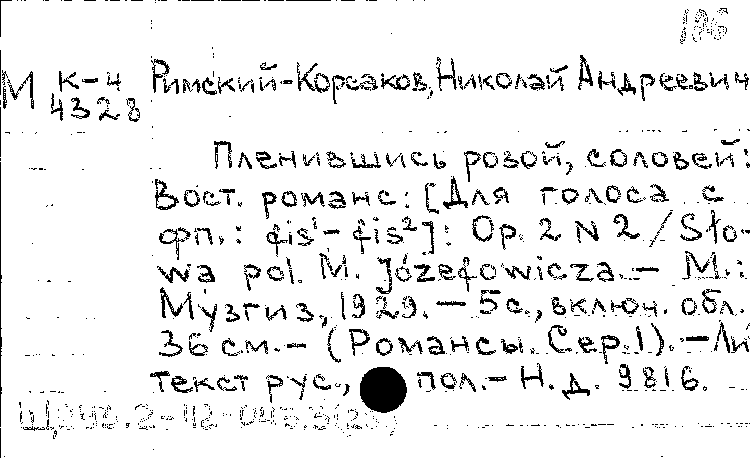 186
М К-4 Римский-Корсаков, Николай Андреевич
4328
Пленившись розой, соловей:
Вост. романс: [Для голоса с
фп.: fis¹-fis²]: Op. 2 N 2 / Sło-
wa pol. M. Józefowicza. — М.:
Музгиз, 1929. — 5 с., включ. обл.
36 см. — (Романсы. Сер. 1). — Ли
текст рус., пол. — Н. д. 9816.